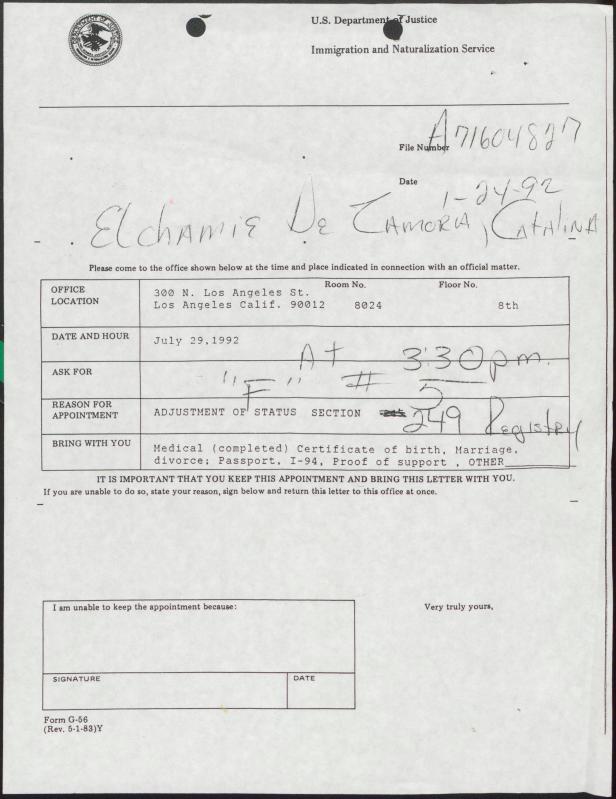 U.S. Department of Justice
Immigration and Naturalization Service
File Number A71604827
Date 1-24-92
Elchamie De Zamora, Catalina
Please come to the office shown below at the time and place indicated in connection with an official matter.
OFFICE LOCATION
300 N. Los Angeles St. Room No. Floor No.
Los Angeles Calif. 90012 8024 8th
DATE AND HOUR July 29,1992
At 3:30pm.
ASK FOR "F" # 5
REASON FOR APPOINTMENT
ADJUSTMENT OF STATUS SECTION 249 Registry
BRING WITH YOU
Medical (completed) Certificate of birth, Marriage,
divorce; Passport, I-94, Proof of support , OTHER
IT IS IMPORTANT THAT YOU KEEP THIS APPOINTMENT AND BRING THIS LETTER WITH YOU.
If you are unable to do so, state your reason, sign below and return this letter to this office at once.
I am unable to keep the appointment because:
Very truly yours,
SIGNATURE DATE
Form G-56
(Rev. 5-1-83)Y